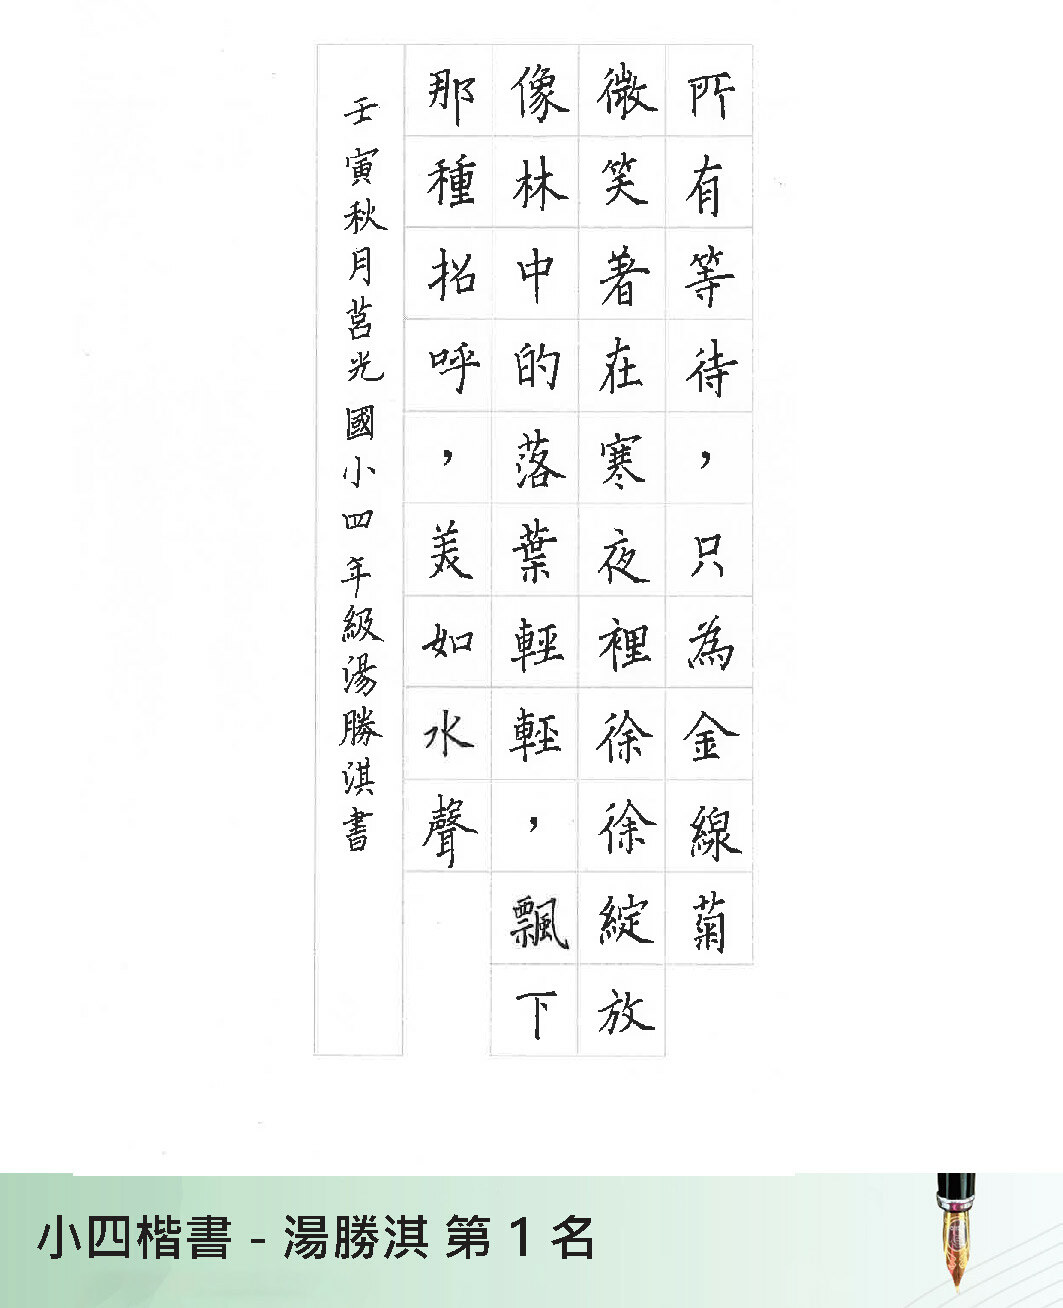 所有等待，只為金線菊
微笑著在寒夜裡徐徐綻放
像林中的落葉輕輕，飄下
那種招呼，美如水聲
壬寅秋月莒光國小四年級湯勝淇書
小四楷書 - 湯勝淇 第 1 名